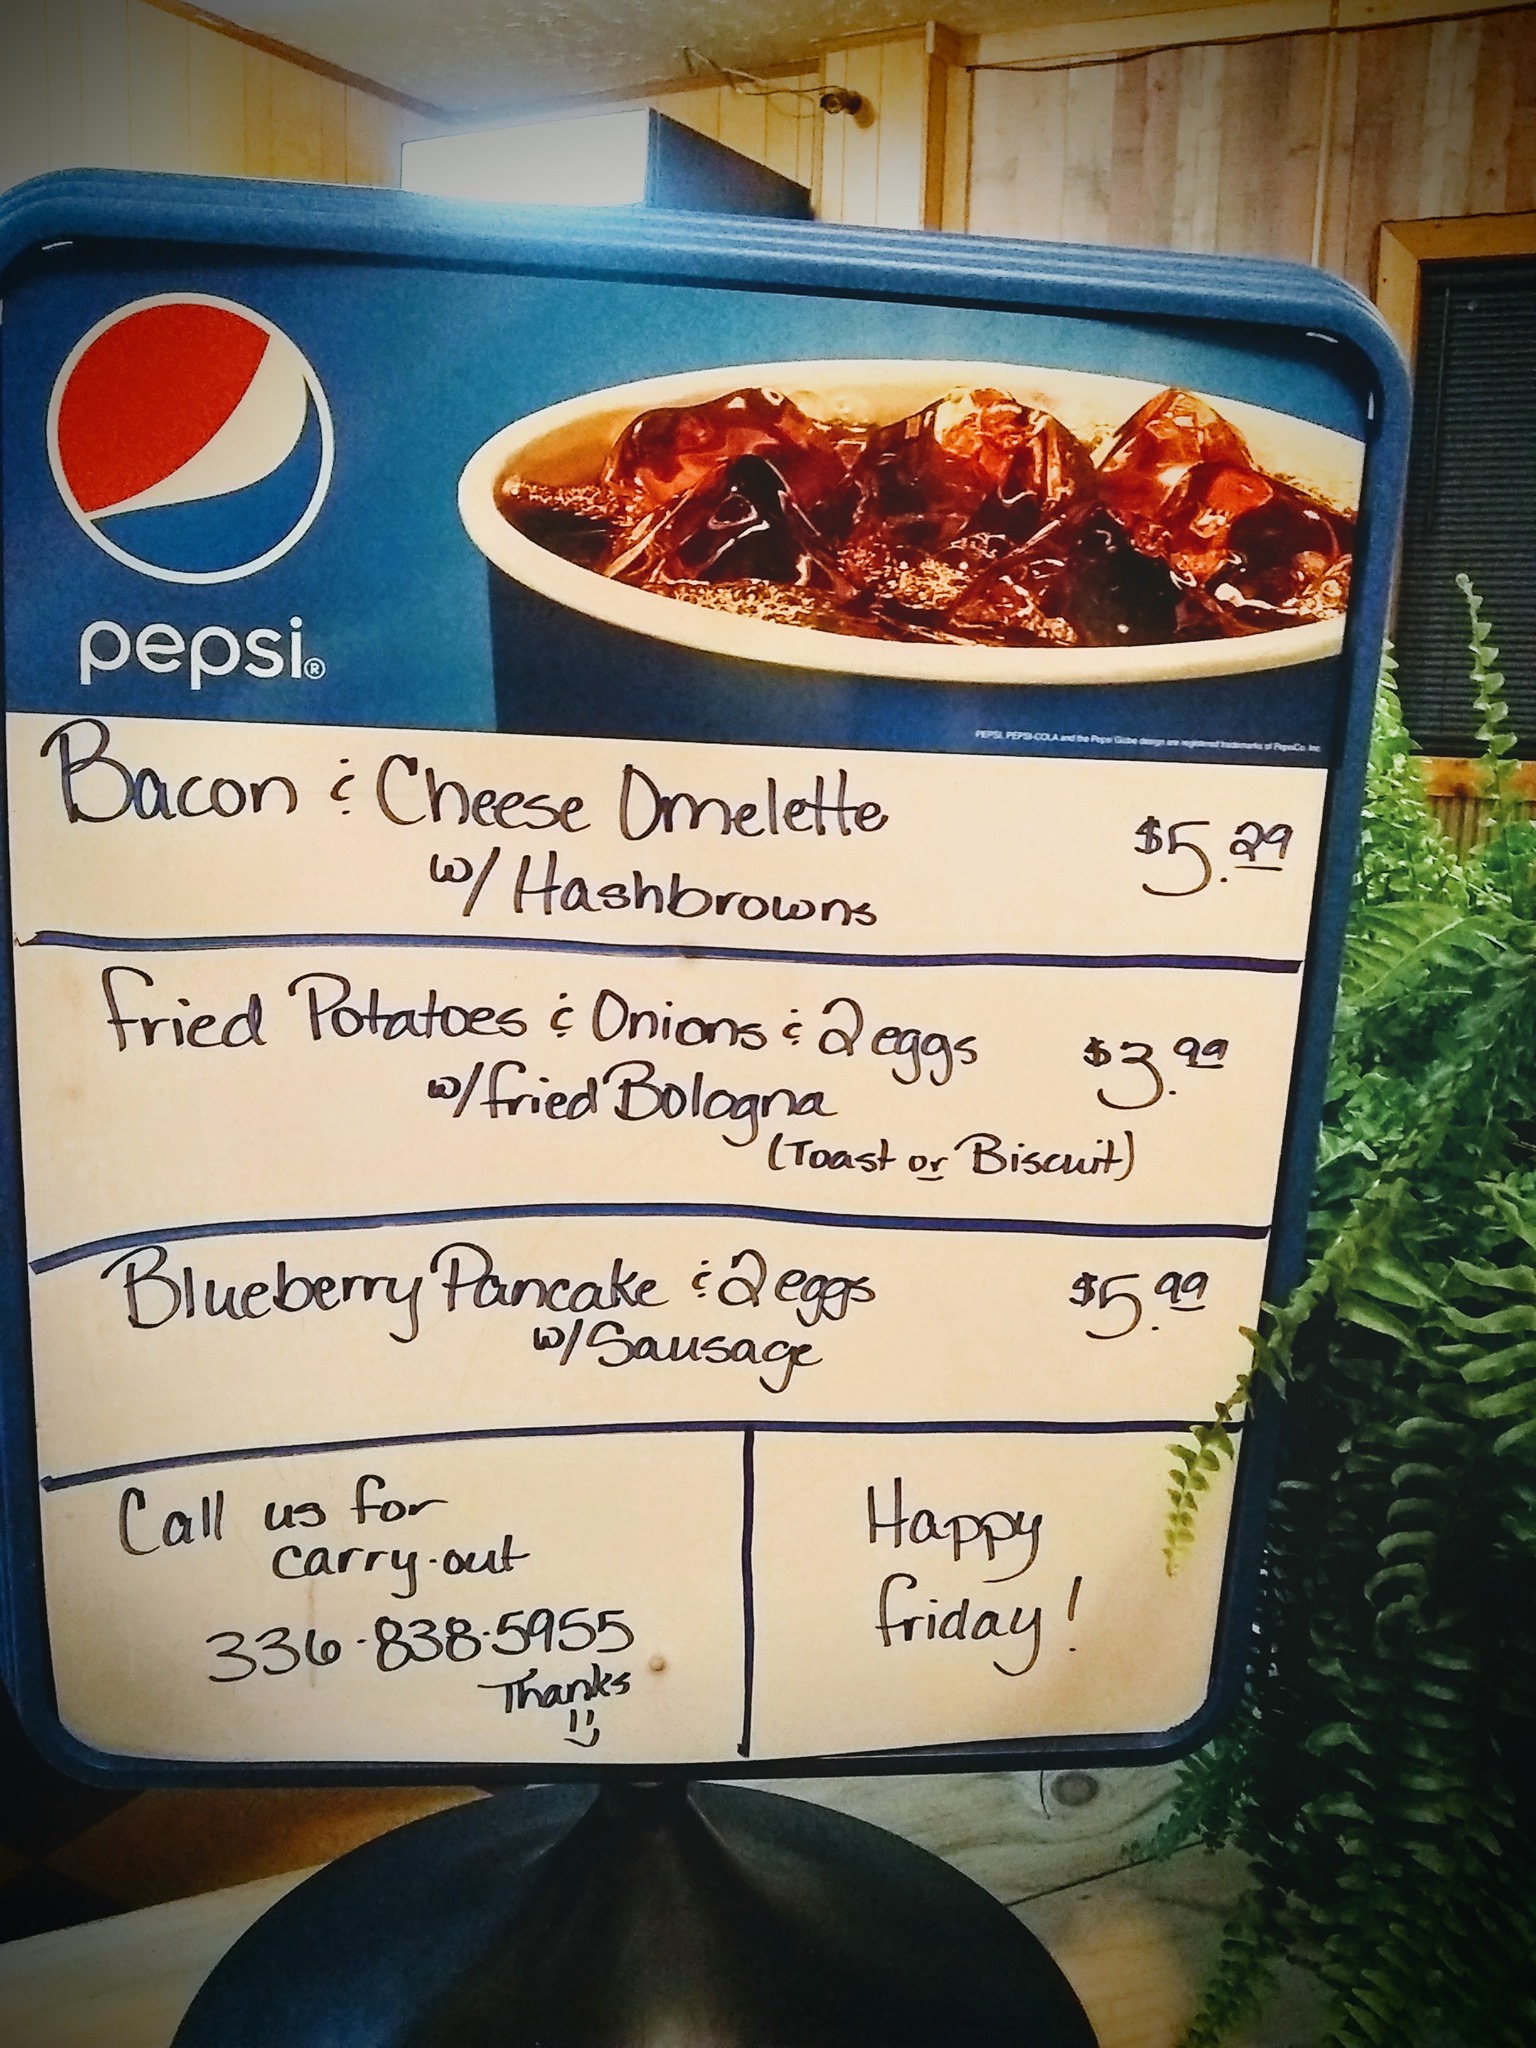 pepsi®
PEPSI, PEPSI-COLA and the Pepsi Globe design are registered trademarks of PepsiCo, Inc.
Bacon & Cheese Omelette
w/ Hashbrowns
$5.29
Fried Potatoes & Onions & 2 eggs
w/ fried Bologna
$3.99
(Toast or Biscuit)
Blueberry Pancake & 2 eggs
w/ Sausage
$5.99
Call us for
carry-out
336-838-5955
Thanks
Happy
friday!